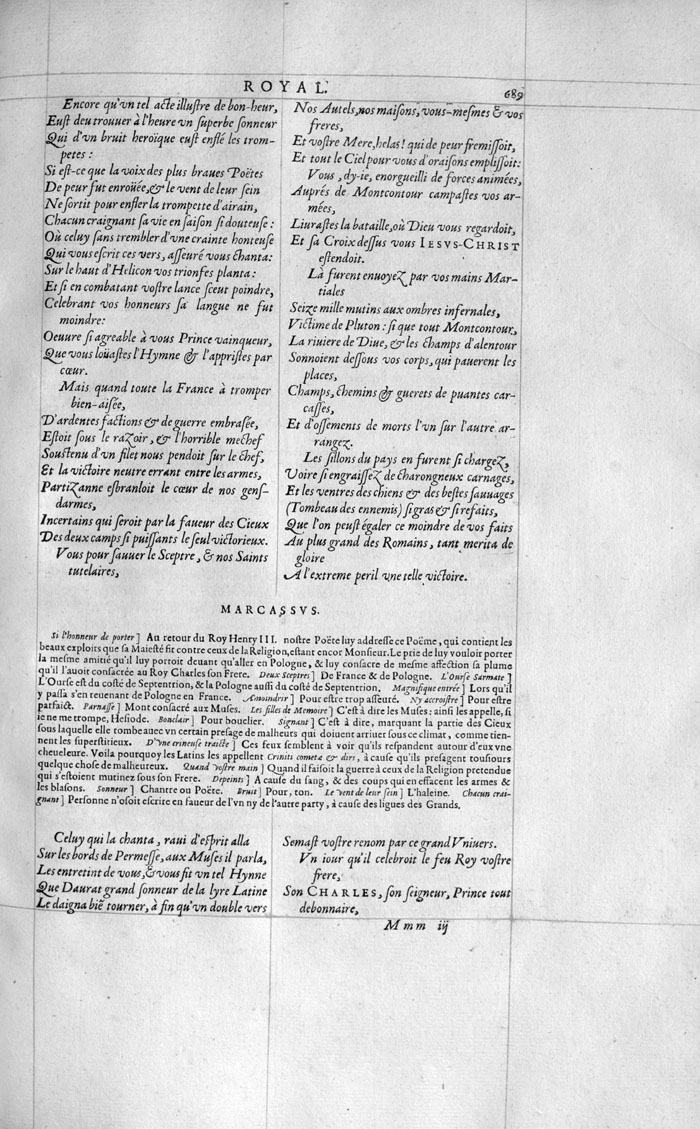 ROYAL.
689
Encore qu'vn tel acte illustre de bon-heur,
Eust deu trouuer à l'heure vn superbe sonneur
Qui d'vn bruit heroïque eust enflé les trom-
petes :
Si est-ce que la voix des plus braues Poëtes
De peur fut enroüée, & le vent de leur sein
Ne sortit pour enfler la trompette d'airain,
Chacun craignant sa vie en saison si douteuse :
Où celuy sans trembler d'vne crainte honteuse
Qui vous escrit ces vers, asseuré vous chanta:
Sur le haut d'Helicon vos trionfes planta :
Et si en combatant vostre lance sceut poindre,
Celebrant vos honneurs sa langue ne fut
moindre:
Oeuure si agreable à vous Prince vainqueur,
Que vous loüastes l'Hymne & l'appristes par
cœur.
Mais quand toute la France à tromper
bien-aisée,
D'ardentes factions & de guerre embrasée,
Estoit sous le razoir, & l'horrible mechef
Soustenu d'vn filet nous pendoit sur le chef,
Et la victoire neutre errant entre les armes,
Partizanne esbranloit le cœur de nos gens-
darmes,
Incertains qui seroit par la faueur des Cieux
Des deux camps si puissants le seul victorieux.
Vous pour sauuer le Sceptre, & nos Saints
tutelaires,
Nos Autels, nos maisons, vous-mesmes & vos
freres,
Et vostre Mere, helas! qui de peur fremissoit,
Et tout le Ciel pour vous d'oraisons emplissoit:
Vous, dy-ie, enorgueilli de forces animées,
Auprés de Montcontour campastes vos ar-
mées,
Liurastes la bataille, où Dieu vous regardoit,
Et sa Croix dessus vous IESVS-CHRIST
estendoit.
Là furent enuoyez par vos mains Mar-
tiales
Seize mille mutins aux ombres infernales,
Victime de Pluton : si que tout Montcontour,
La riuiere de Diue, & les champs d'alentour
Sonnoient dessous vos corps, qui pauerent les
places,
Champs, chemins & guerets de puantes car-
casses,
Et d'ossements de morts l'vn sur l'autre ar-
rangez.
Les sillons du pays en furent si chargez,
Voire si engraissez de charongneux carnages,
Et les ventres des chiens & des bestes sauuages
(Tombeau des ennemis) si gras & si refaits,
Que l'on peust égaler ce moindre de vos faits
Au plus grand des Romains, tant merita de
gloire
A l'extreme peril vne telle victoire.
MARCASSVS.
Si l'honneur de porter ] Au retour du Roy Henry III. nostre Poëte luy addresse ce Poëme, qui contient les
beaux exploits que sa Maiesté fit contre ceux de la Religion, estant encor Monsieur. Le prie de luy vouloir porter
la mesme amitié qu'il luy portoit deuant qu'aller en Pologne, & luy consacre de mesme affection sa plume
qu'il l'auoit consacrée au Roy Charles son Frere. Deux Sceptres ] De France & de Pologne. L'Ourse Sarmate ]
L'Ourse est du costé de Septentrion, & la Pologne aussi du costé de Septentrion. Magnifique entrée ] Lors qu'il
y passa s'en reuenant de Pologne en France. Amoindrir ] Pour estre trop asseuré. Ny accroistre ] Pour estre
parfaict. Parnasse ] Mont consacré aux Muses. Les filles de Memoire ] C'est à dire les Muses : ainsi les appelle, si
ie ne me trompe, Hesiode. Bouclair ] Pour bouclier. Signant ] C'est à dire, marquant la partie des Cieux
sous laquelle elle tombe auec vn certain presage de malheurs qui doiuent arriuer sous ce climat, comme tien-
nent les superstitieux. D'vne crineuse traicte ] Ces feux semblent à voir qu'ils respandent autour d'eux vne
cheueleure. Voila pourquoy les Latins les appellent Crinits cometæ & dirs, à cause qu'ils presagent tousiours
quelque chose de malheureux. Quand vostre main ] Quand il faisoit la guerre à ceux de la Religion pretendue
qui s'estoient mutinez sous son Frere. Depeints ] A cause du sang, & des coups qui en effacent les armes &
les blasons. Sonneur ] Chantre ou Poëte. Bruit ] Pour, ton. Le vent de leur sein ] L'haleine. Chacun crai-
gnant ] Personne n'osoit escrire en faueur de l'vn ny de l'autre party, à cause des ligues des Grands.
Celuy qui la chanta, raui d'esprit alla
Sur les bords de Permesse, aux Muses il parla,
Les entretint de vous, & vous fit vn tel Hynne
Que Daurat grand sonneur de la lyre Latine
Le daigna biẽ tourner, à fin qu'vn double vers
Semast vostre renom par ce grand Vniuers.
Vn iour qu'il celebroit le feu Roy vostre
frere,
Son CHARLES, son seigneur, Prince tout
debonnaire,
Mmm iij